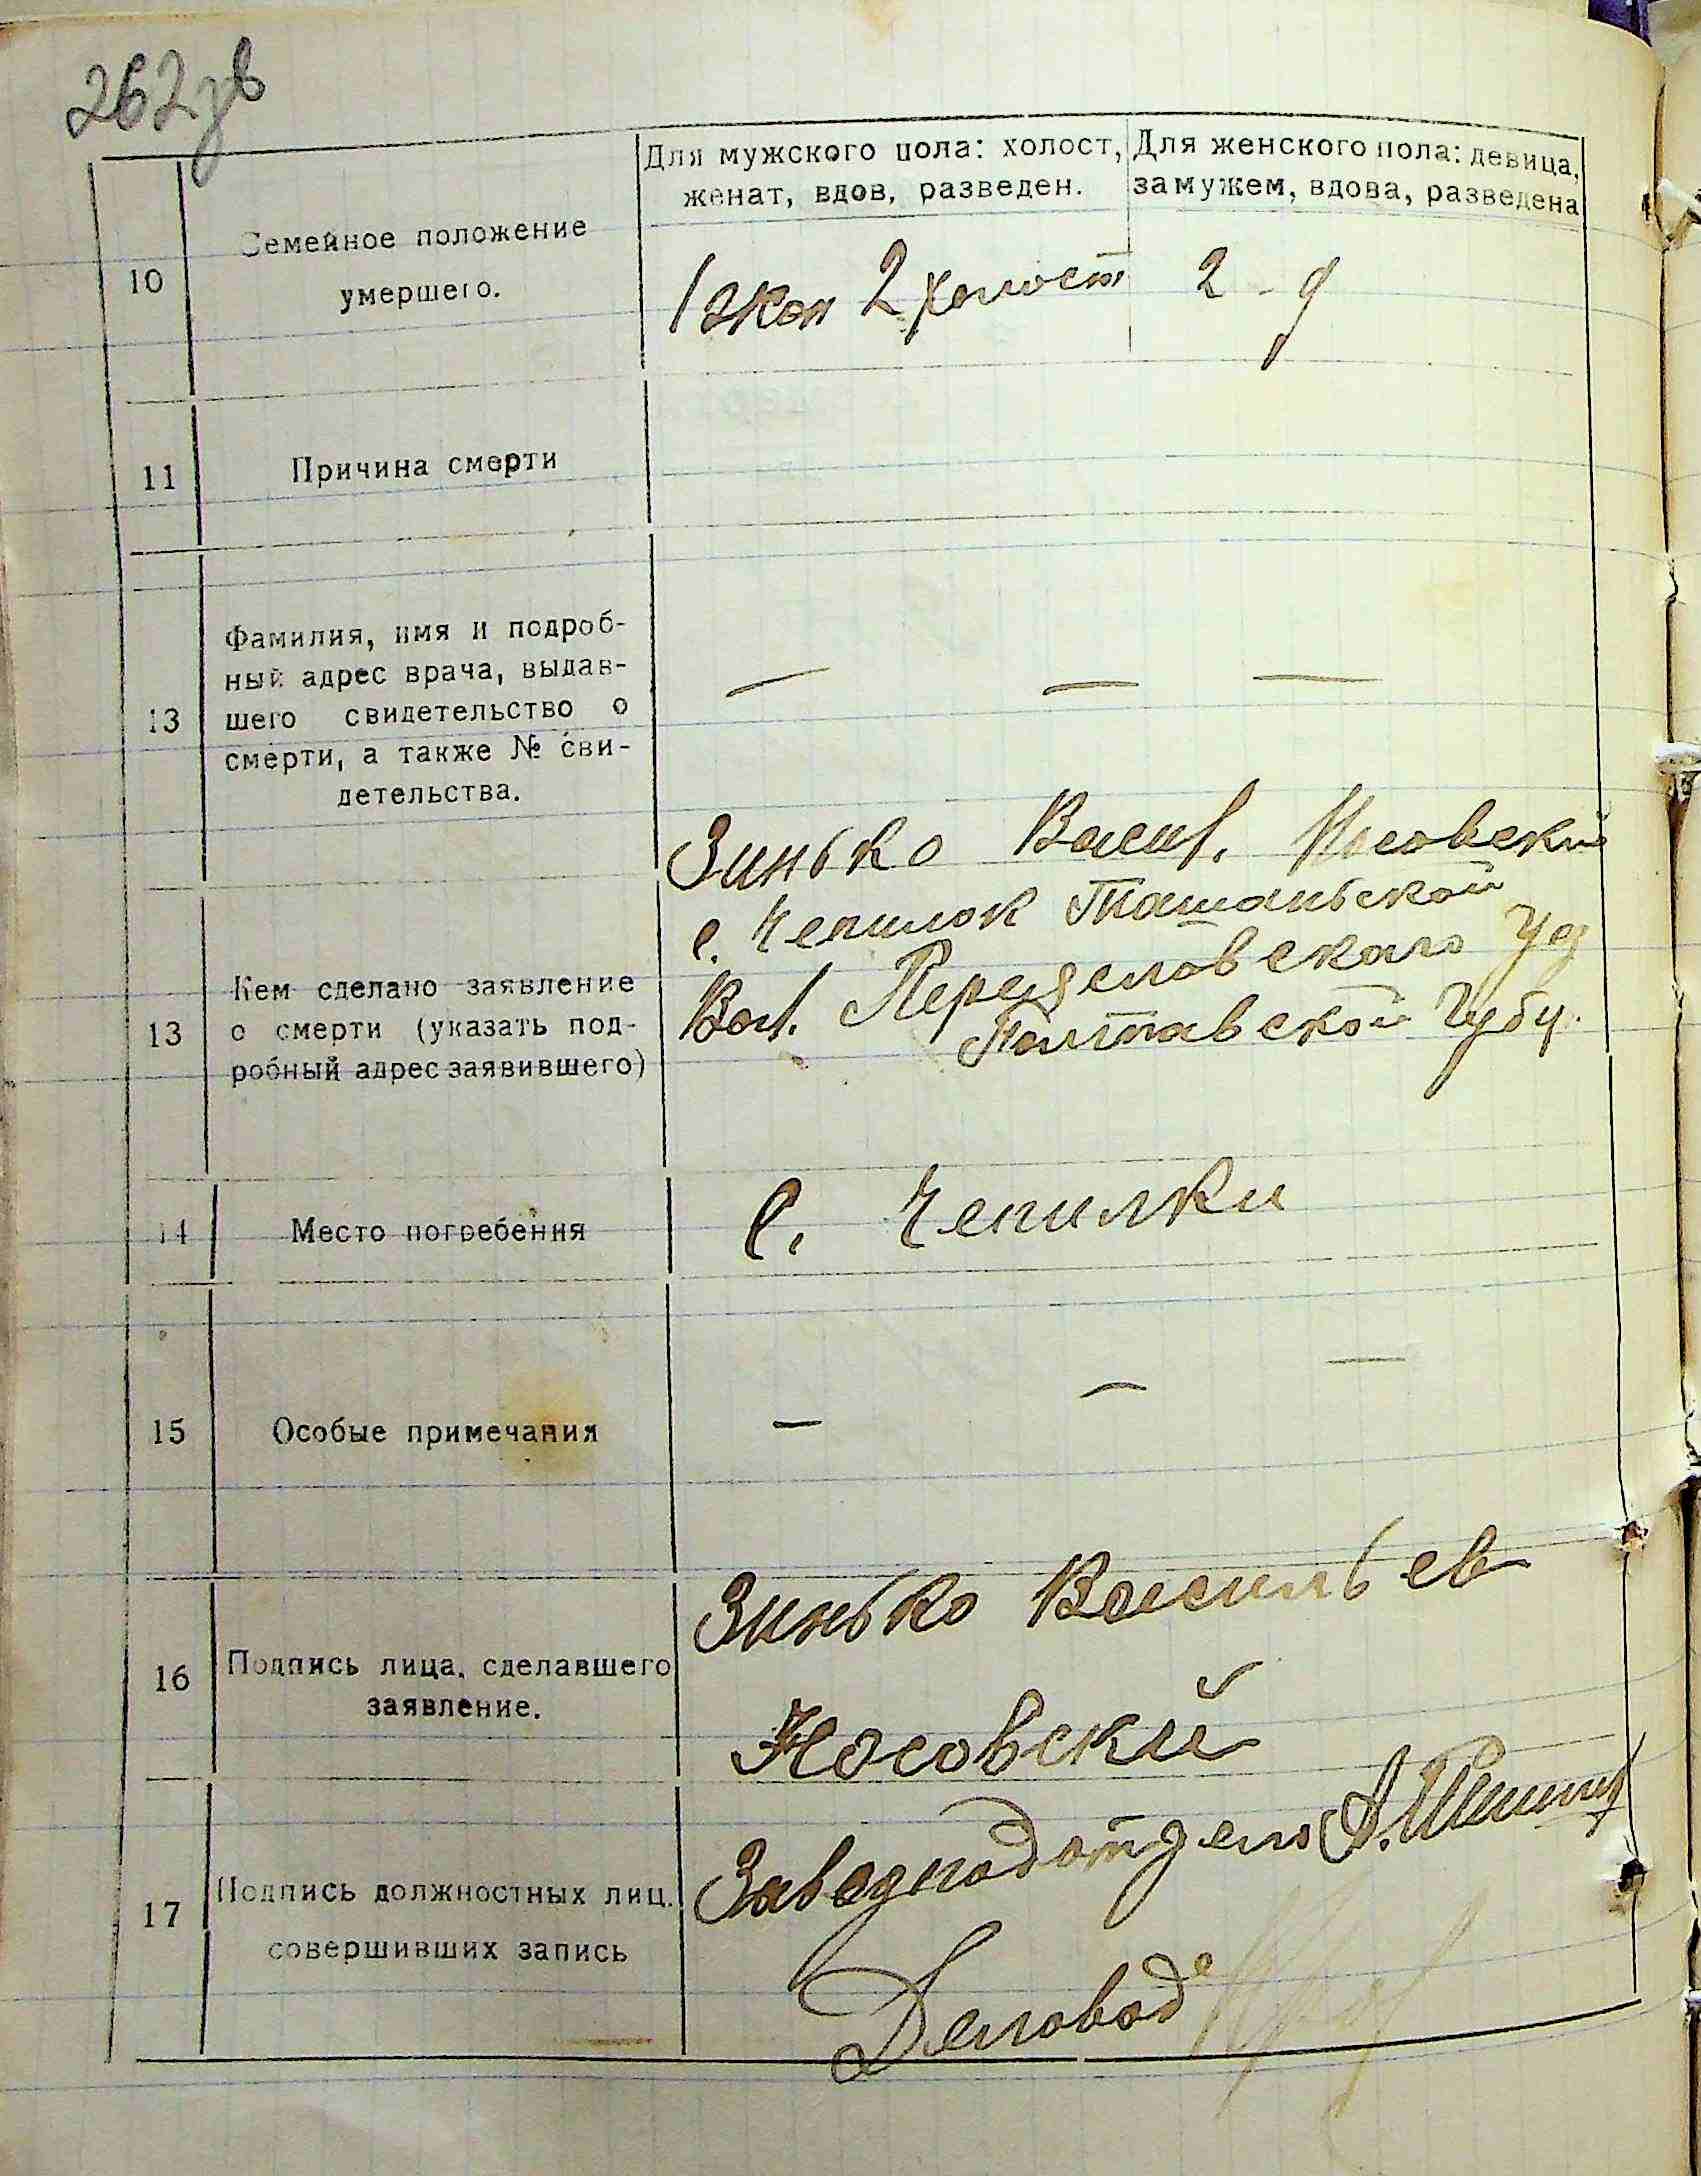 262зв
Для мужского пола: холост,
женат, вдов, разведен.
Для женского пола: девица,
замужем, вдова, разведена
10
Семейное положение
умершего.
1 2 холост
2 - д
11
Причина смерти
13
Фамилия, имя и подроб-
ный адрес врача, выдав-
шего свидетельство о
смерти, а также № сви-
детельства.
— — —
13
Кем сделано заявление
о смерти (указать под-
робный адрес заявившего)
Зинько Васил. Носовский
с. Чепилок Ташаньской
Вол. Переяславскаго Уез
Полтавской Губ.
14
Место погребения
С. Чепилки
15
Особые примечания
— — —
16
Подпись лица, сделавшего
заявление.
Зинько Васильев
Носовский
17
Подпись должностных лиц.
совершивших запись
Завед подотдело
Деловод